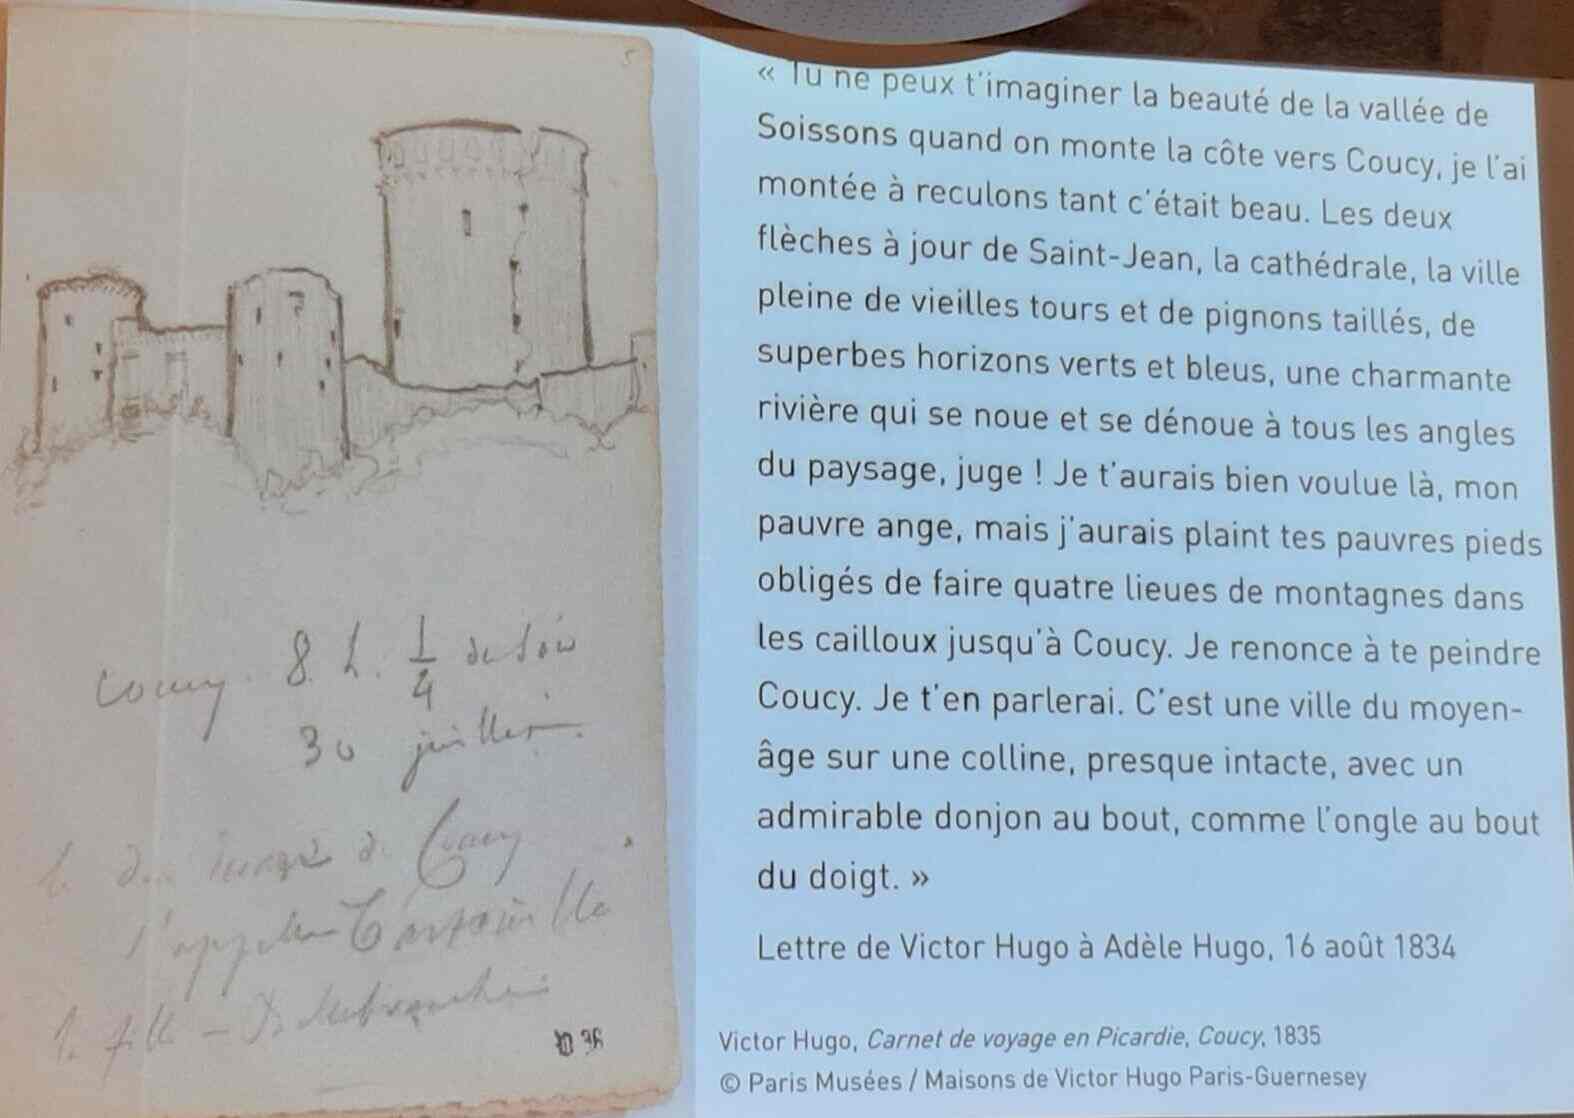 Coucy. 8. h. 1/4 du soir
30 juillet.
de Coucy
« Tu ne peux t'imaginer la beauté de la vallée de
Soissons quand on monte la côte vers Coucy, je l'ai
montée à reculons tant c'était beau. Les deux
flèches à jour de Saint-Jean, la cathédrale, la ville
pleine de vieilles tours et de pignons taillés, de
superbes horizons verts et bleus, une charmante
rivière qui se noue et se dénoue à tous les angles
du paysage, juge ! Je t'aurais bien voulue là, mon
pauvre ange, mais j'aurais plaint tes pauvres pieds
obligés de faire quatre lieues de montagnes dans
les cailloux jusqu'à Coucy. Je renonce à te peindre
Coucy. Je t'en parlerai. C'est une ville du moyen-
âge sur une colline, presque intacte, avec un
admirable donjon au bout, comme l'ongle au bout
du doigt. »
Lettre de Victor Hugo à Adèle Hugo, 16 août 1834
Victor Hugo, Carnet de voyage en Picardie, Coucy, 1835
© Paris Musées / Maisons de Victor Hugo Paris-Guernesey